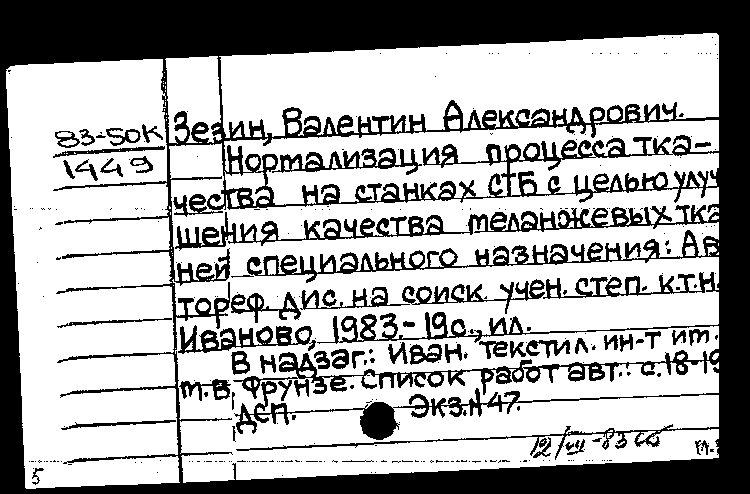 83-50К
1449
Зезин, Валентин Александрович.
Нормализация процесса тка-
чества на станках СТБ с целью улуч
шения качества меланжевых тка
ней специального назначения: Ав
тореф. дис. на соиск. учен. степ. к.т.н.
Иваново, 1983.- 19с., ил.
В надзаг.: Иван. текстил. ин-т им.
М.В. Фрунзе. Список работ авт.: с.18-19
ДСП. Экз.№47.
12/VII-83
5